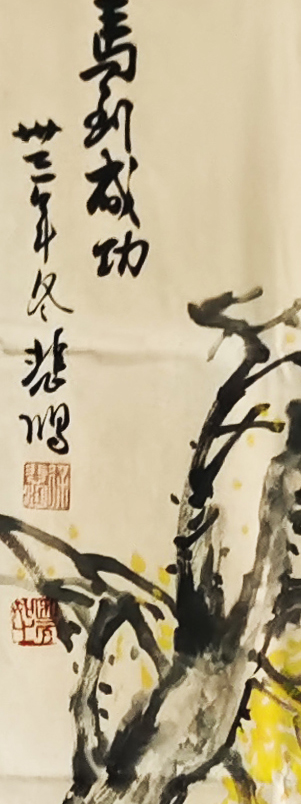 馬到成功
卅三年冬
悲鴻